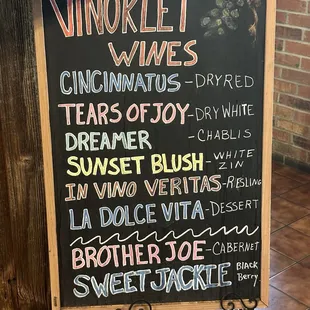 VINOKLET
WINES
CINCINNATUS - DRY RED
TEARS OF JOY - DRY WHITE
DREAMER - CHABLIS
SUNSET BLUSH - WHITE ZIN
IN VINO VERITAS - RIESLING
LA DOLCE VITA - DESSERT
BROTHER JOE - CABERNET
SWEET JACKIE Black Berry